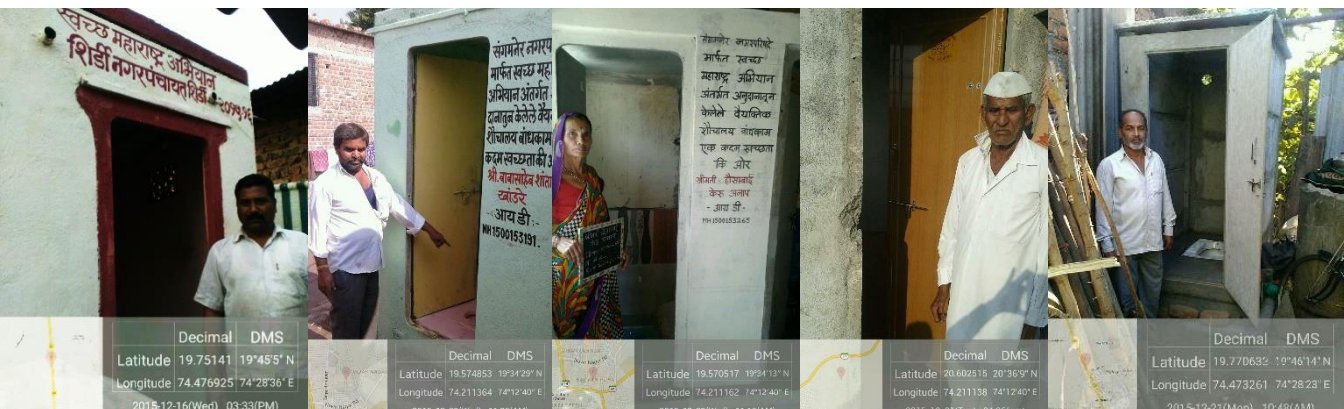 स्वच्छ महाराष्ट्र अभियान
शिर्डी नगरपंचायत शिर्डी
Decimal DMS
Latitude 19.75141 19°45'5" N
Longitude 74.476925 74°28'36" E
2015-12-16(Wed) 03:33(PM)
संगमनेर नगरप
मार्फत स्वच्छ महा
अभियान अंतर्गत
दानातुन केलेले वैय
शौचालय बांधकाम
कदम स्वच्छताकी
श्री. बाबासाहेब शांता
खांडरे
-: आय डी :-
MH1500153191.
Decimal DMS
Latitude 19.574853 19°34'29" N
Longitude 74.211364 74°12'40" E
संगमनेर नगरपरिषदे
मार्फत स्वच्छ
महाराष्ट्र अभियान
अंतर्गत अनुदानातून
केलेले वैयक्तिक
शौचालय बांधकाम
एक कदम स्वच्छता
कि ओर
श्रीमती हौसाबाई
केरु अलाप
- आय डी -
MH1500153265
Decimal DMS
Latitude 19.570517 19°34'13" N
Longitude 74.211162 74°12'40" E
Decimal DMS
Latitude 20.602515 20°36'9" N
Longitude 74.211138 74°12'40" E
Decimal DMS
Latitude 19.770633 19°46'14" N
Longitude 74.473261 74°28'23" E
2015-12-21(Mon) 10:48(AM)